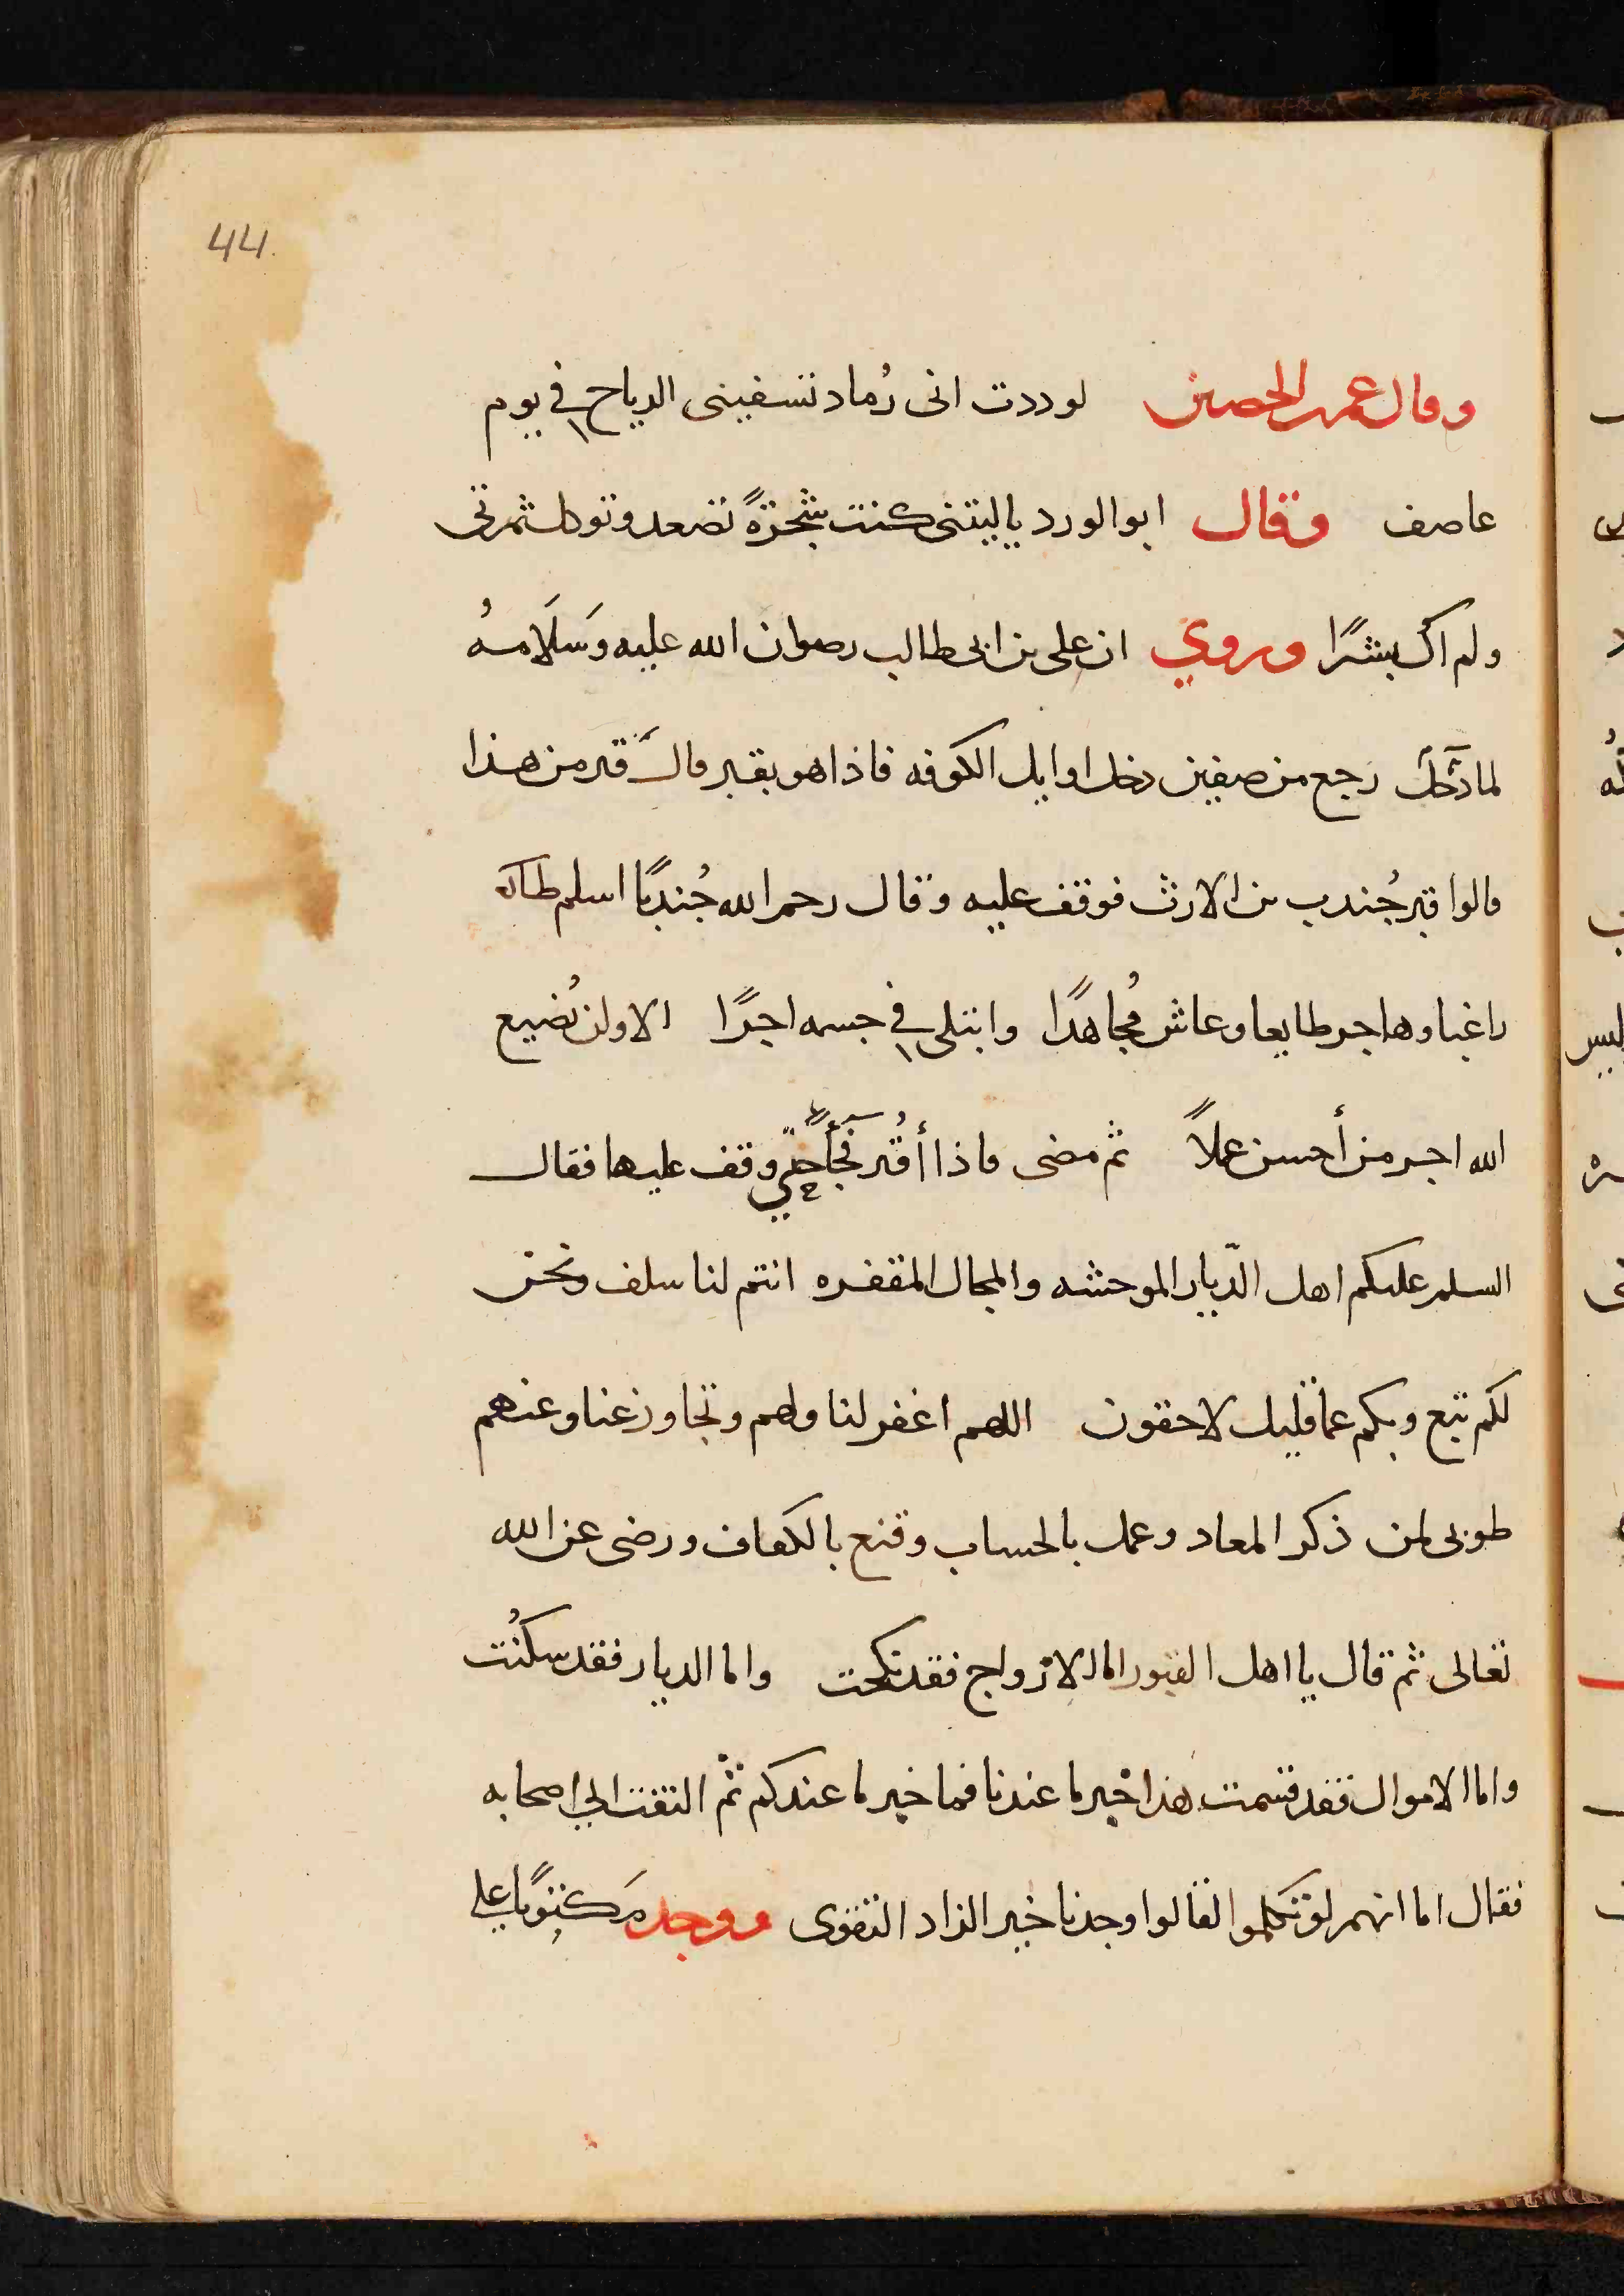 44
وقال عمر الحصين لوددت انى رُماد تنسفينى الرياح في يوم
عاصف وقال ابو الورد ياليتنى كنت شجرةً تضعد وتوكل ثمرتى
ولم اك بشرًا وروي ان على بن ابى طالب رضوان الله عليه وسَلَامهُ
لما دخل رجع من صفين دخل اوايل الكوفه فاذا هو بقبر قال قبر من هذا
قالوا قبر جُندب بن الارث فوقف عليه وقال رحم الله جُندبًا اسلم
راغبا وهاجر طايعا وعاش مُجاهدًا وابتلى في جسمه اجرًا الا ولن نُضيع
الله اجر من أحسن عملاً ثم مضى فاذا أقُبر وقف عليها فقال
السلم عليكم اهل الدّيار الموحشه والمجال المقفره انتم لنا سلف ونحن
لكم تبع وبكم عما قليل لاحقون اللهم اغفر لنا ولهم وتجاوز عنا وعنهم
طوبى لمن ذكر المعاد وعمل بالحساب وقنع بالكفاف ورضى عن الله
تعالى ثم قال يا اهل القبور اما الازواج فقد نكحت واما الديار فقد سكنُت
واما الاموال فقد قسمت هذا خبر ما عندنا فما خبر ما عندكم ثم التفت الي اصحابه
فقال اما انهم لو تكلموا لقالوا وجدنا خير الزاد التقوى ووجد مَكتوبًا علي